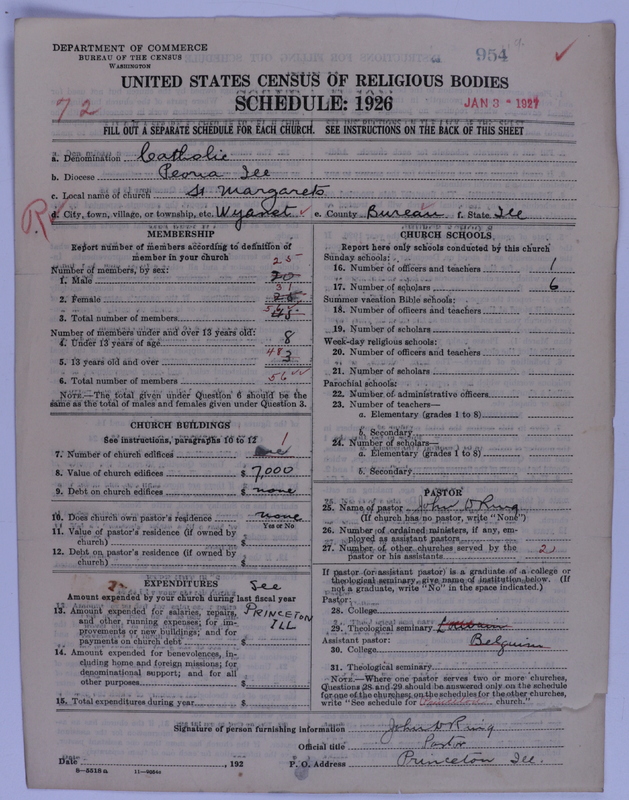 DEPARTMENT OF COMMERCE
BUREAU OF THE CENSUS
WASHINGTON
954
UNITED STATES CENSUS OF RELIGIOUS BODIES
SCHEDULE: 1926
72
JAN 3 - 1927
FILL OUT A SEPARATE SCHEDULE FOR EACH CHURCH. SEE INSTRUCTIONS ON THE BACK OF THIS SHEET
a. Denomination Catholic
b. Diocese Peoria Ill
c. Local name of church St Margarets
R
d. City, town, village, or township, etc. Wyanet e. County Bureau f. State Ill
MEMBERSHIP
Report number of members according to definition of
member in your church
Number of members, by sex:
1. Male 25
2. Female 31
3. Total number of members 56
Number of members under and over 13 years old:
4. Under 13 years of age 8
5. 13 years old and over 48
6. Total number of members 56
NOTE.—The total given under Question 6 should be the
same as the total of males and females given under Question 3.
CHURCH BUILDINGS
See instructions, paragraphs 10 to 12
7. Number of church edifices 1
8. Value of church edifices $ 7,000
9. Debt on church edifices $ none
10. Does church own pastor's residence none
Yes or No
11. Value of pastor's residence (if owned by
church) $
12. Debt on pastor's residence (if owned by
church) $
EXPENDITURES See
Amount expended by your church during last fiscal year
PRINCETON
ILL
13. Amount expended for salaries, repairs,
and other running expenses; for im-
provements or new buildings; and for
payments on church debt $
14. Amount expended for benevolences, in-
cluding home and foreign missions; for
denominational support; and for all
other purposes $
15. Total expenditures during year $
CHURCH SCHOOLS
Report here only schools conducted by this church
Sunday schools:
16. Number of officers and teachers 1
17. Number of scholars 6
Summer vacation Bible schools:
18. Number of officers and teachers
19. Number of scholars
Week-day religious schools:
20. Number of officers and teachers
21. Number of scholars
Parochial schools:
22. Number of administrative officers
23. Number of teachers—
a. Elementary (grades 1 to 8)
b. Secondary
24. Number of scholars—
a. Elementary (grades 1 to 8)
b. Secondary
PASTOR
25. Name of pastor John D Ring
(If church has no pastor, write "None")
26. Number of ordained ministers, if any, em-
ployed as assistant pastors
27. Number of other churches served by the
pastor or his assistants 2
If pastor (or assistant pastor) is a graduate of a college or
theological seminary, give name of institution below. (If
not a graduate, write "No" in the space indicated.)
Pastor:
28. College
29. Theological seminary Louvain
Assistant pastor: Belguim
30. College
31. Theological seminary
NOTE.—Where one pastor serves two or more churches,
Questions 28 and 29 should be answered only on the schedule
for one of the churches, on the schedules for the other churches,
write "See schedule for Princeton church."
Signature of person furnishing information John D Ring
Official title Pastor
Date , 192 P. O. Address Princeton Ill.
8—5518a 11—9054